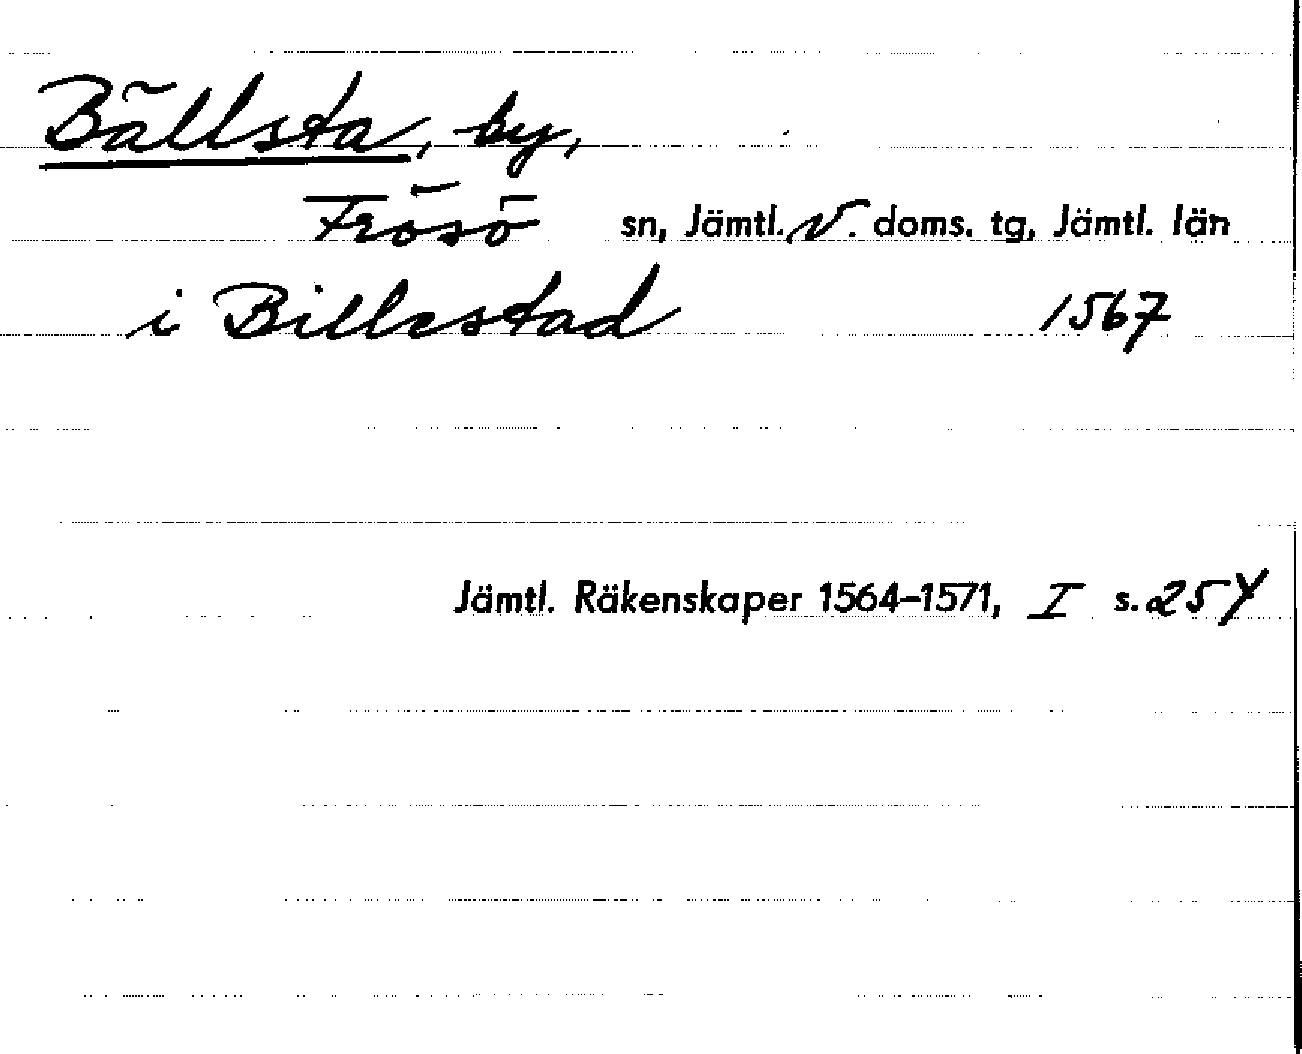 Bällsta, by,
Frösö sn, Jämtl. V. doms. tg, Jämtl. län
i Billestad 1567
Jämtl. Räkenskaper 1564-1571, I s. 254